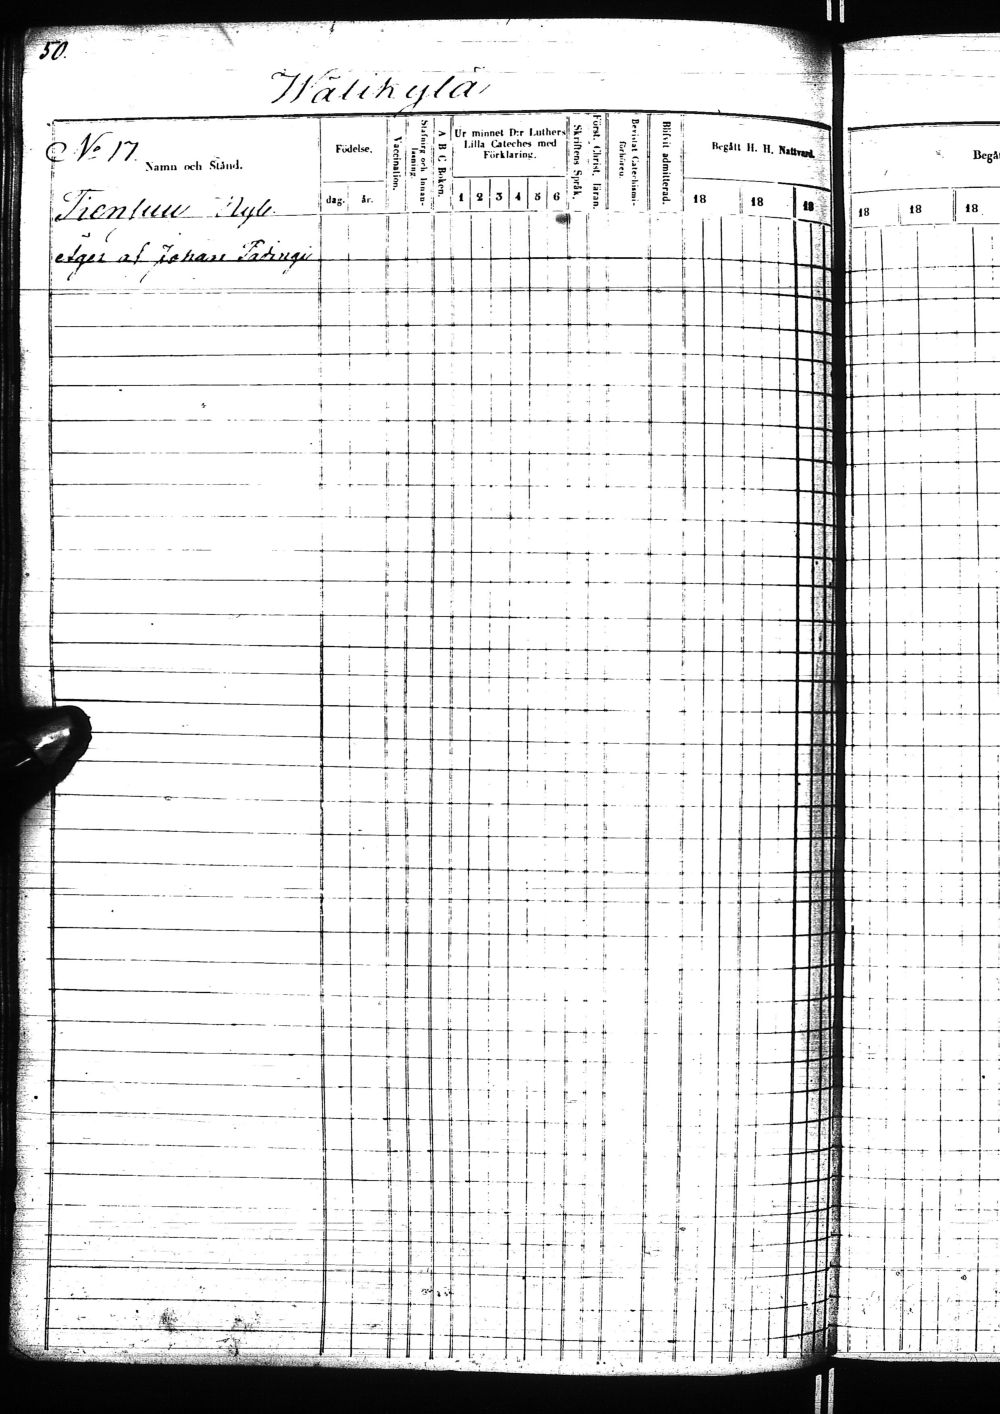 50.
Wälikylä
No 17.
Namn och Stånd.
Födelse.
dag. år.
Vaccination.
Stafning och Innan-
läsning.
A B C Boken.
Ur minnet D:r Luthers
Lilla Cateches med
Förklaring.
1 2 3 4 5 6
Skriftens Språk.
Först. Christ. läran.
Bevistat Catechismi-
förhören.
Blifvit admitterad.
Begått H. H. Nattvard.
18 18 18
äges af Johan
Begå
18 18 18